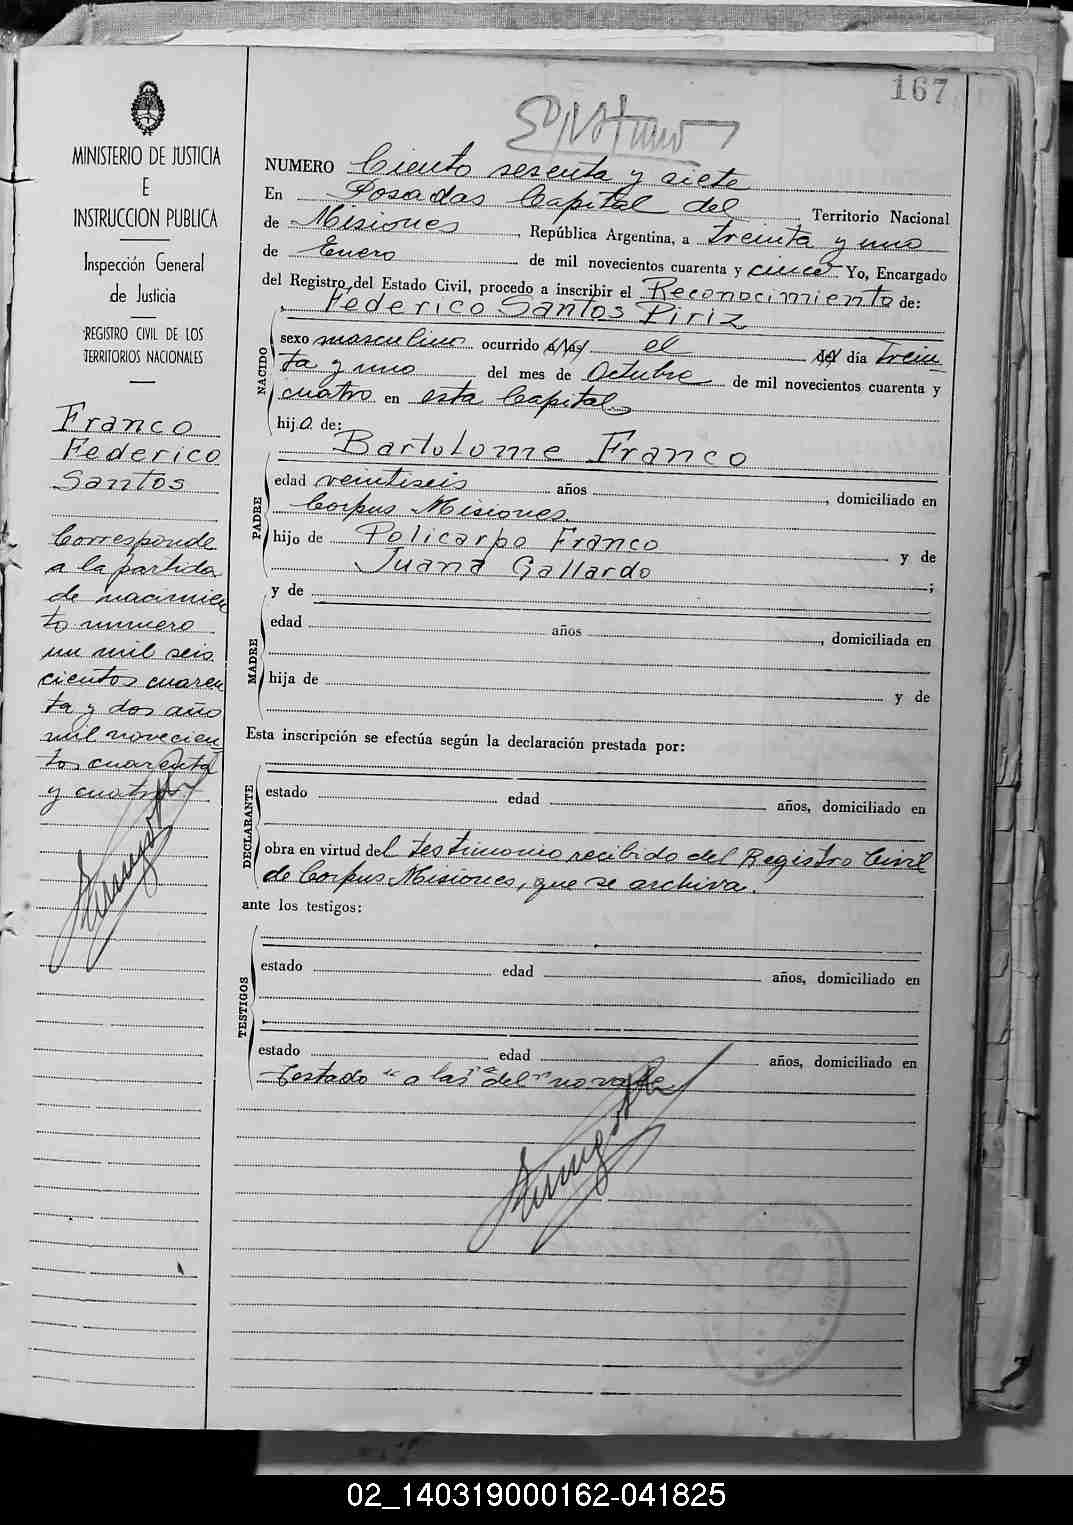 167
MINISTERIO DE JUSTICIA
E
INSTRUCCION PUBLICA
Inspección General
de Justicia
REGISTRO CIVIL DE LOS
TERRITORIOS NACIONALES
Franco
Federico
Santos
Corresponde
a la partida
de nacimien
to numero
un mil seis
cientos cuaren
ta y dos año
mil novecien
tos cuarenta
y cuatro
NUMERO Ciento sesenta y siete
En Posadas Capital del Territorio Nacional
de Misiones, República Argentina, a treinta y uno
de Enero de mil novecientos cuarenta y cinco Yo, Encargado
del Registro del Estado Civil, procedo a inscribir el Reconocimiento de:
Federico Santos Piriz
NACIDO
sexo masculino ocurrido a las el del día trein
ta y uno del mes de Octubre de mil novecientos cuarenta y
cuatro en esta Capital
hijo de:
Bartolome Franco
PADRE
edad veintiseis años, domiciliado en
Corpus Misiones
hijo de Policarpo Franco y de
Juana Gallardo;
y de
MADRE
edad años, domiciliada en
hija de y de
Esta inscripción se efectúa según la declaración prestada por:
DECLARANTE
estado edad años, domiciliado en
obra en virtud del testimonio recibido del Registro Civil
de Corpus Misiones, que se archiva.
ante los testigos:
TESTIGOS
estado edad años, domiciliado en
estado edad años, domiciliado en
Testado "a las" "del" no vale
02_140319000162-041825